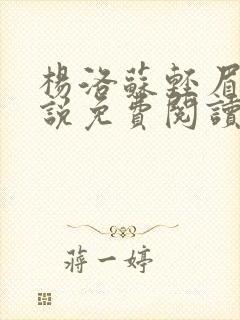 楊洛蘇輕眉
說免費閱讀
蔣一婷